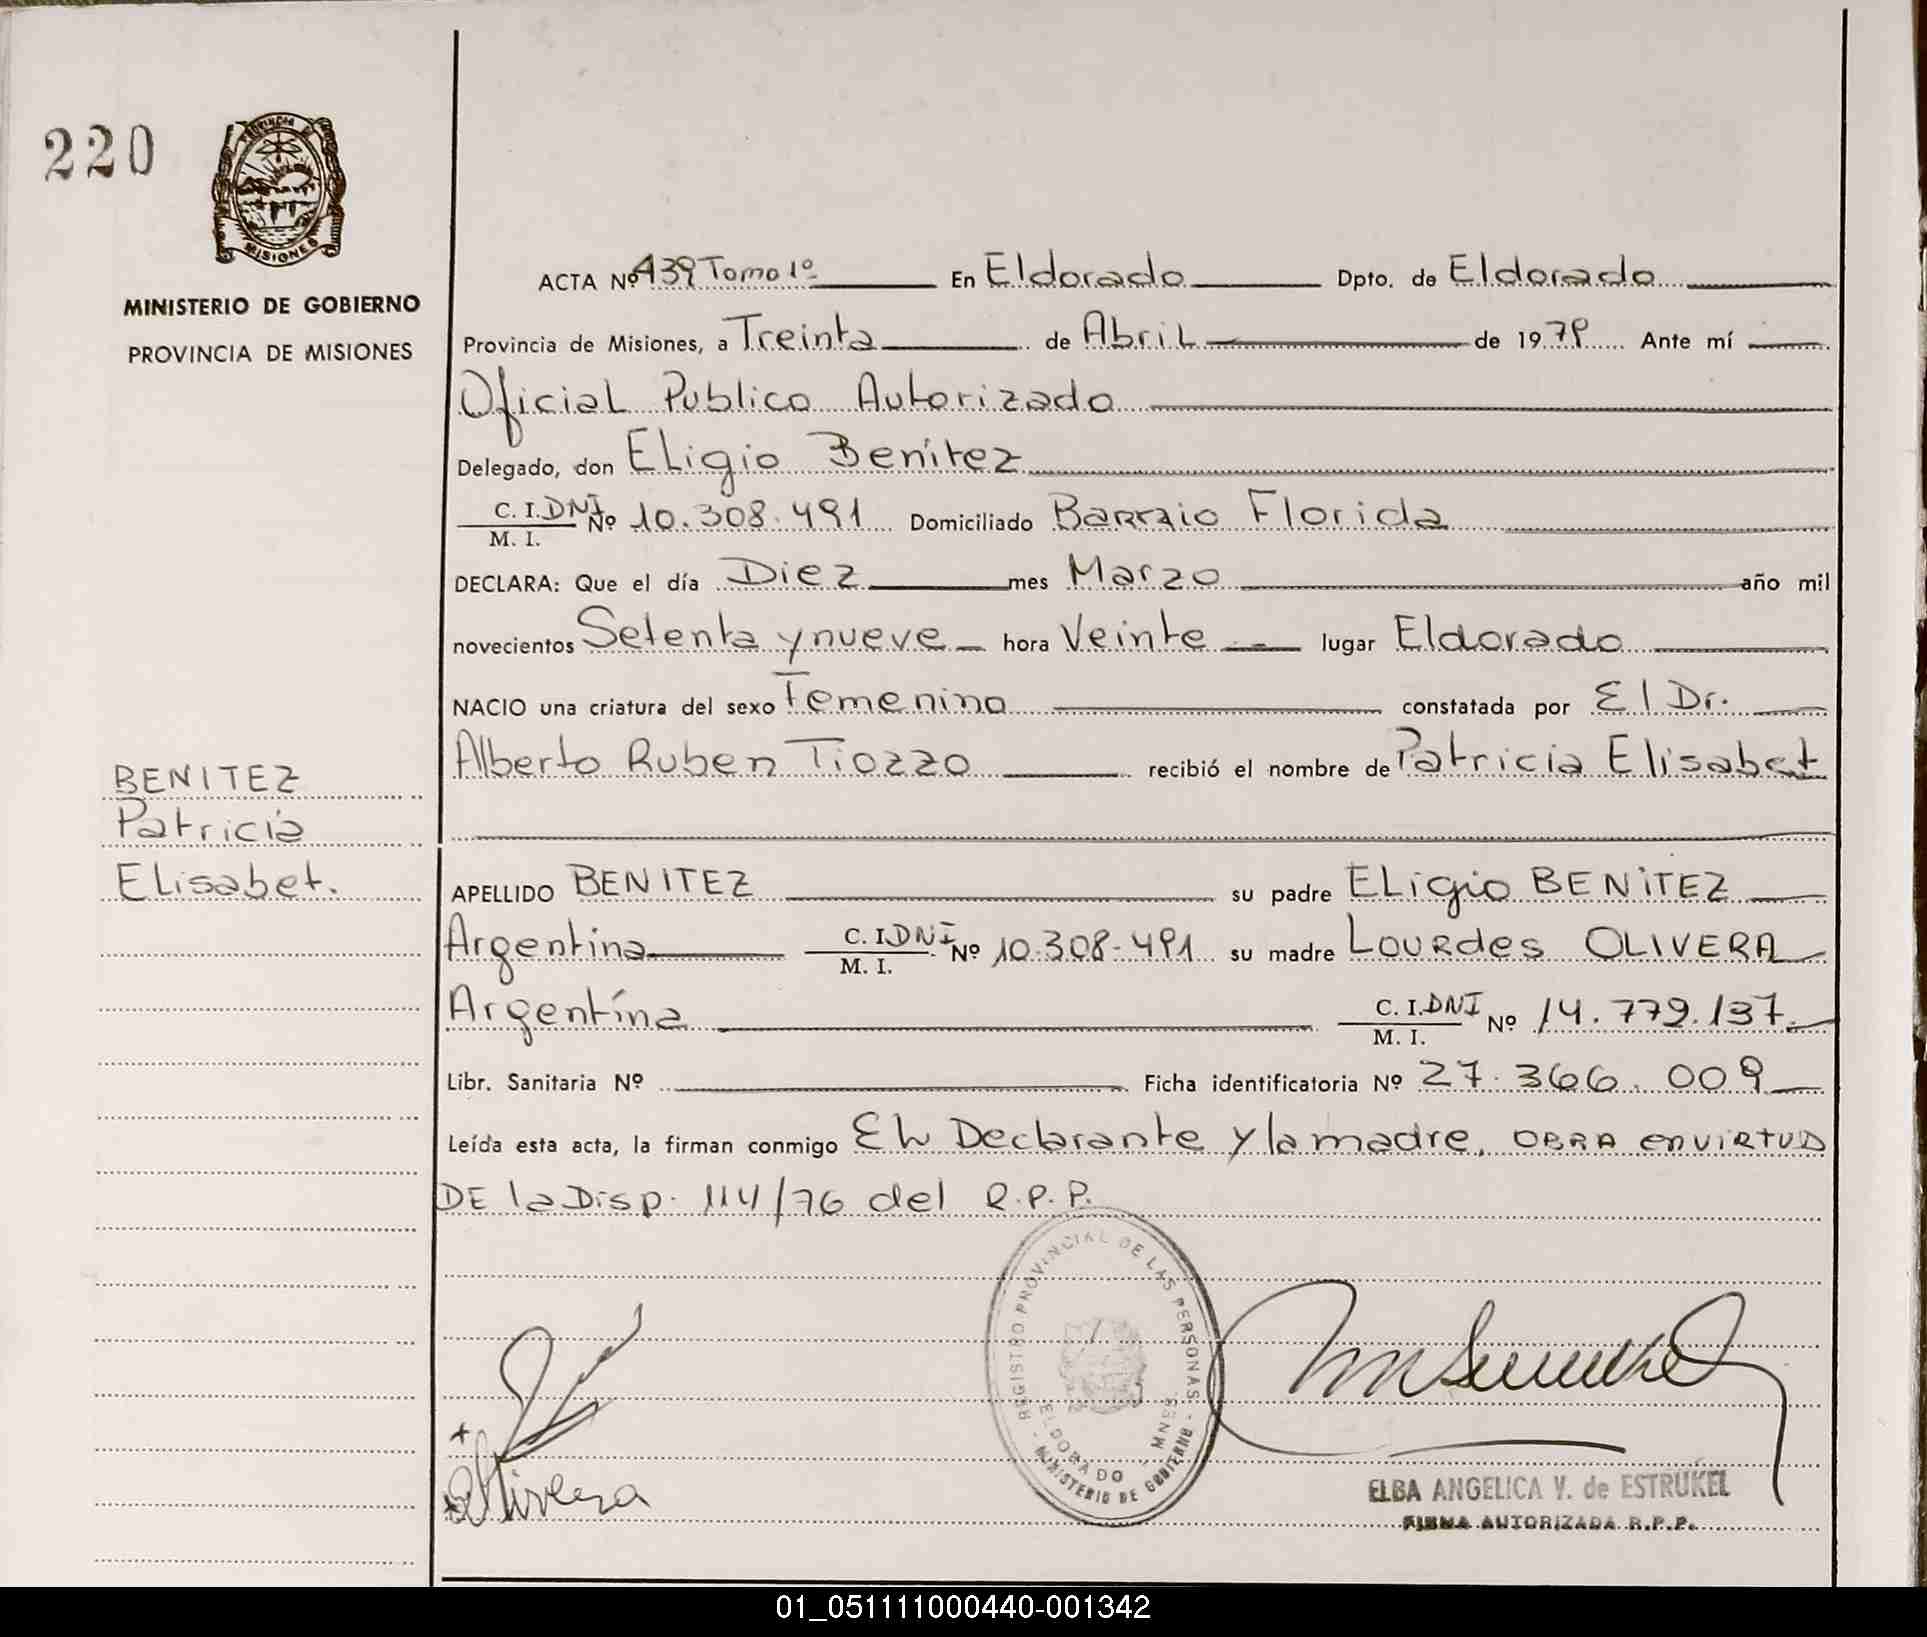 220
PROVINCIA DE
MISIONES
MINISTERIO DE GOBIERNO
PROVINCIA DE MISIONES
ACTA Nº 439 Tomo 1º En Eldorado Dpto. de Eldorado
Provincia de Misiones, a Treinta de Abril de 1979 Ante mí
Oficial Publico Autorizado
Delegado, don Eligio Benítez
C. I. DNI
M. I. Nº 10.308.491 Domiciliado Barraio Florida
DECLARA: Que el día Diez mes Marzo año mil
novecientos Setenta y nueve hora Veinte lugar Eldorado
NACIO una criatura del sexo Femenino constatada por El Dr.
Alberto Ruben Tiozzo recibió el nombre de Patricia Elisabet
BENITEZ
Patricia
Elisabet.
APELLIDO BENITEZ su padre Eligio BENITEZ
Argentina C. I. DNI
M. I. Nº 10.308.491 su madre Lourdes OLIVERA
Argentína C. I. DNI
M. I. Nº 14.779.137.
Libr. Sanitaria Nº Ficha identificatoria Nº 27.366.009
Leída esta acta, la firman conmigo El Declarante y la madre, OBRA en virtud
DE la Disp. 114/76 del R.P.P.
REGISTRO PROVINCIAL DE LAS PERSONAS
ELDORADO MNES.
- MINISTERIO DE GOBIERNO -
Olivera
ELBA ANGELICA V. de ESTRUKEL
FIRMA AUTORIZADA R.P.P.
01_051111000440-001342